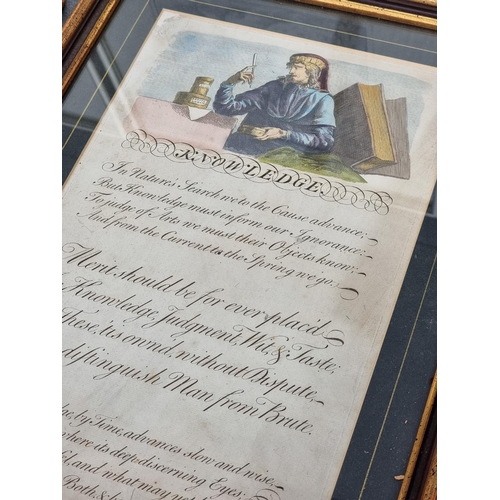 KNOWLEDGE
In Nature's Search we to the Cause advance;
But Knowledge must inform our Ignorance:
To judge of Arts we must their Objects know;
And from the Current to the Spring we go.
Merit should be for ever plac'd
Knowledge, Judgment, Wit, & Taste;
These, 'tis own'd, without Dispute,
distinguish Man from Brute.
by Time, advances slow and wise
where its deep discerning Eyes
and what may yet
Both